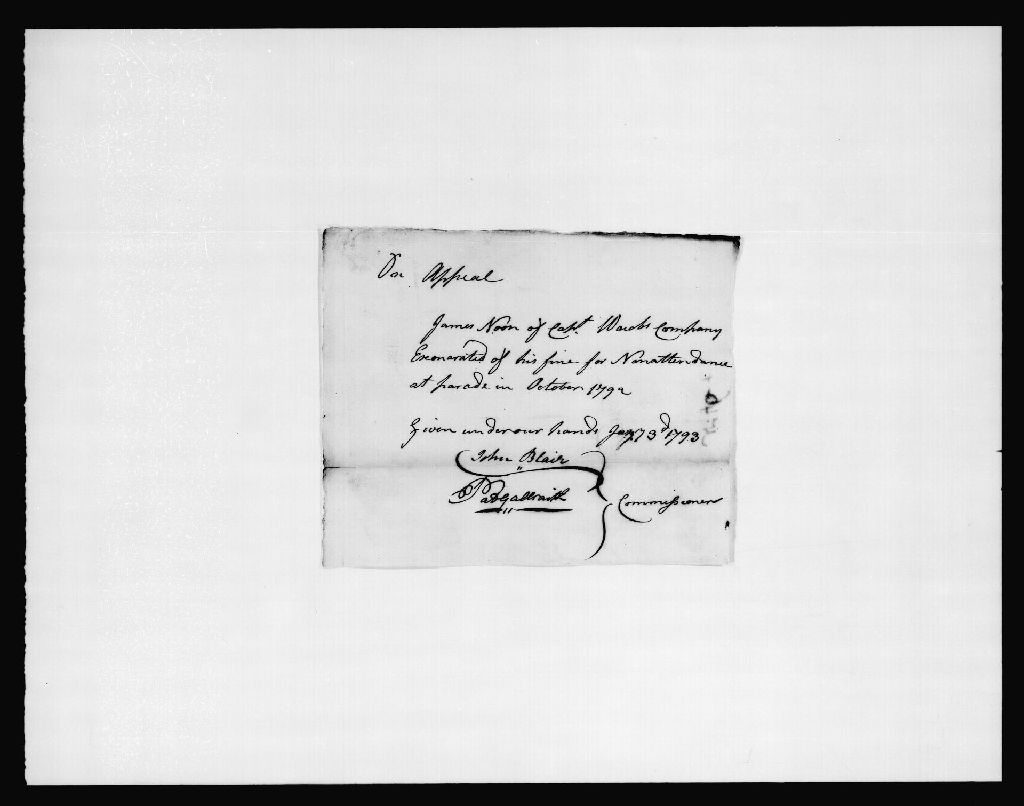 On Appeal
James Noon of Capt. Company
Exonerated of his fine for Nonattendance
at parade in October 1792
Given under our hands Jany 3d 1793
John Blair
Pat Galbraith
Commissioners